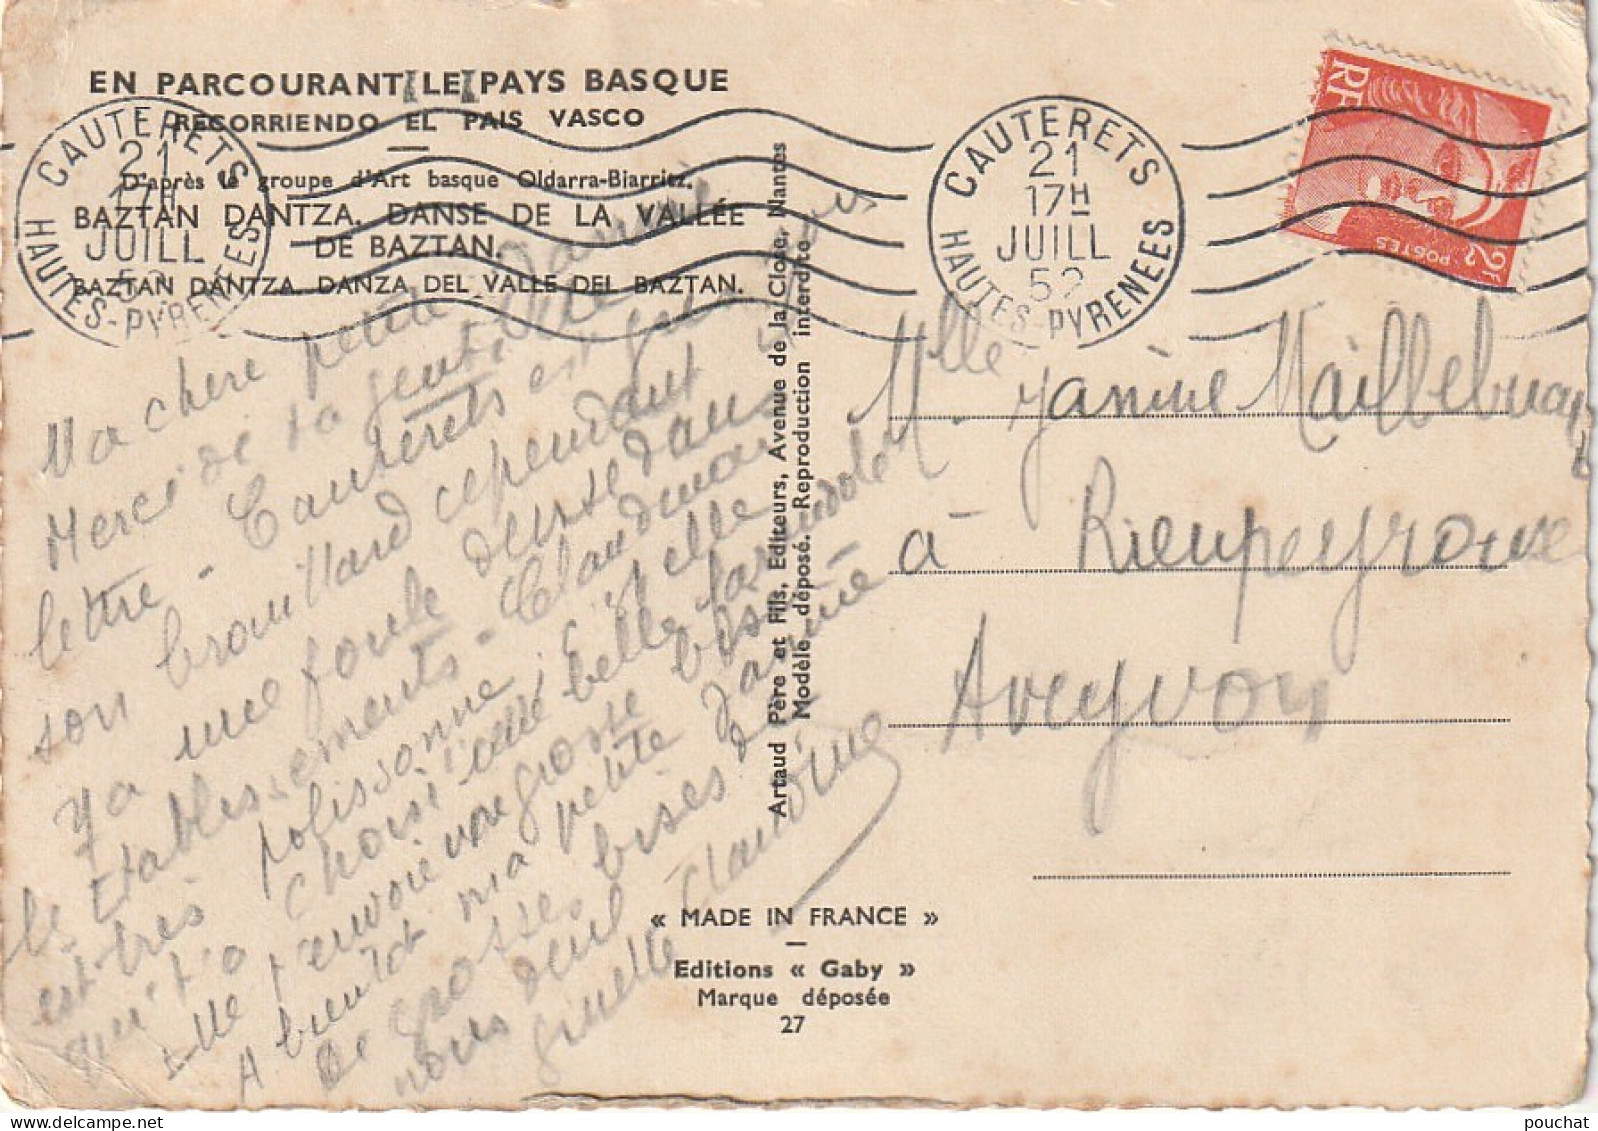 EN PARCOURANT LE PAYS BASQUE
RECORRIENDO EL PAIS VASCO
D'après le groupe d'Art basque Oldarra-Biarritz.
BAZTAN DANTZA. DANSE DE LA VALLÉE
DE BAZTAN.
BAZTAN DANTZA. DANZA DEL VALLE DEL BAZTAN.
CAUTERETS
21
17H
JUILL
52
HAUTES-PYRENEES
CAUTERETS
21
17H
JUILL
52
HAUTES-PYRENEES
RF
POSTES
2F
Ma chère petite Janine
Merci de ta gentille
lettre - Cauterets est gris sous
son brouillard cependant il
y a une foule dense dans
les Etablissements - Claudine
est très polissonne, est elle
qui t'a choisi cette belle farandole
elle t'envoie une grosse bise
A bientôt ma petite Janine
De grosses bises de
nous deux
Claudine
Artaud Père et Fils, Editeurs, Avenue de la Close, Nantes
Modèle déposé. Reproduction interdite
Mlle
M. Janine Maillebuau
à Rieupeyroux
Aveyron
« MADE IN FRANCE »
Editions « Gaby »
Marque déposée
27
pouchat